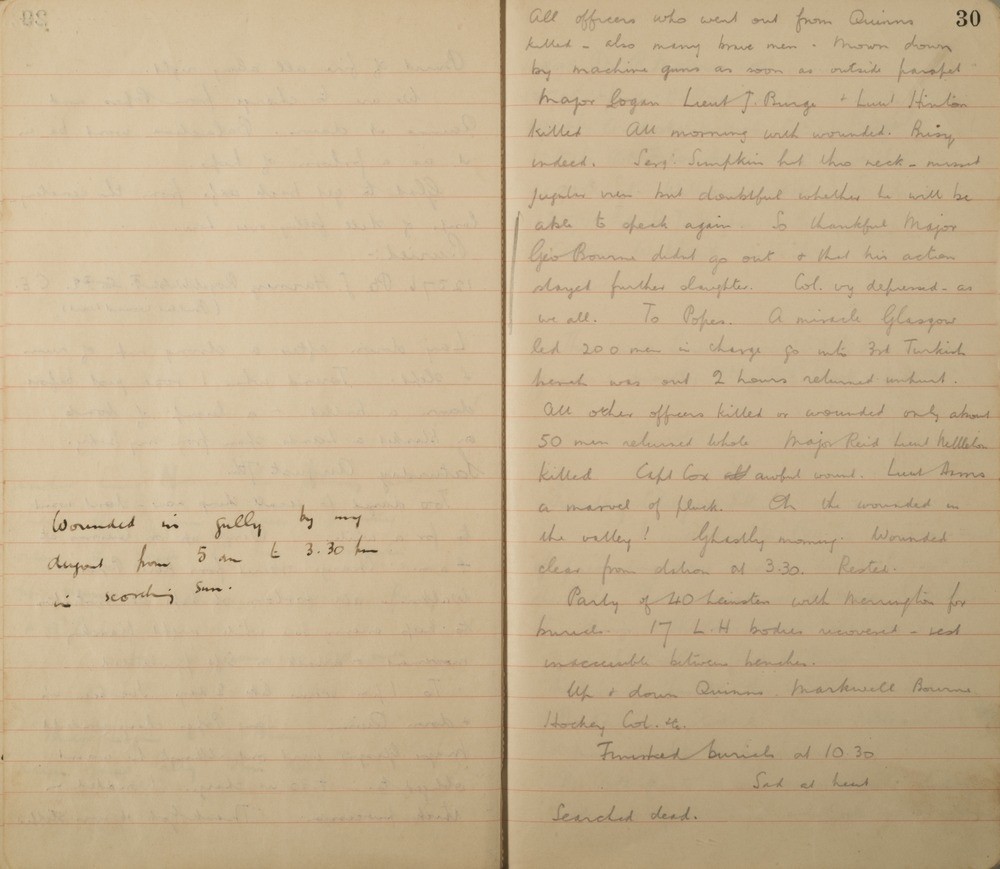 Wounded in gully by my
dugout from 5 am to 3.30 pm
in scorching sun.
30
All officers who went out from Quinns
killed - also many brave men. Mown down
by machine guns as soon as outside parapet
Major Logan Lieut J. Burge + Lieut Hinton
killed All morning with wounded. Busy
indeed. Sergt Simpkin hit thro neck - missed
jugular vein but doubtful whether he will be
able to speak again. So thankful Major
Geo Bourne didnt go out + that his action
stayed further slaughter. Col. vy depressed - as
we all. To Popes. A miracle Glasgow
led 200 men in charge go into 3rd Turkish
trench was out 2 hours returned unhurt.
All other officers killed or wounded only about
50 men returned whole Major Reid Lieut Nettleton
killed Capt Cox awful wound. Lieut
a marvel of pluck. Oh the wounded in
the valley! Ghastly morning. Wounded
clear from station at 3.30. Rested.
Party of 40 Leinsters with Merrington for
burials. 17 L.H bodies recovered - rest
inaccessible between trenches.
Up + down Quinns. Markwell Bourne
Hockey Col. etc.
Finished burials at 10.30
Sad at heart
Searched dead.